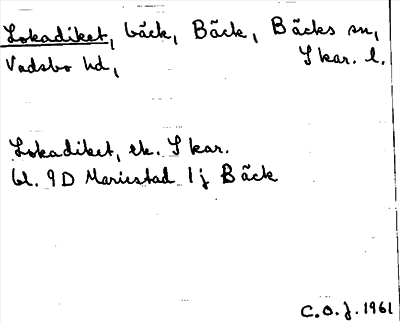 Lokadiket, bäck, Bäck, Bäcks sn,
Vadsbo hd, Skar. l.
Lokadiket, ek. Skar.
bl. 9D Mariestad 1j Bäck
C.O.J. 1961